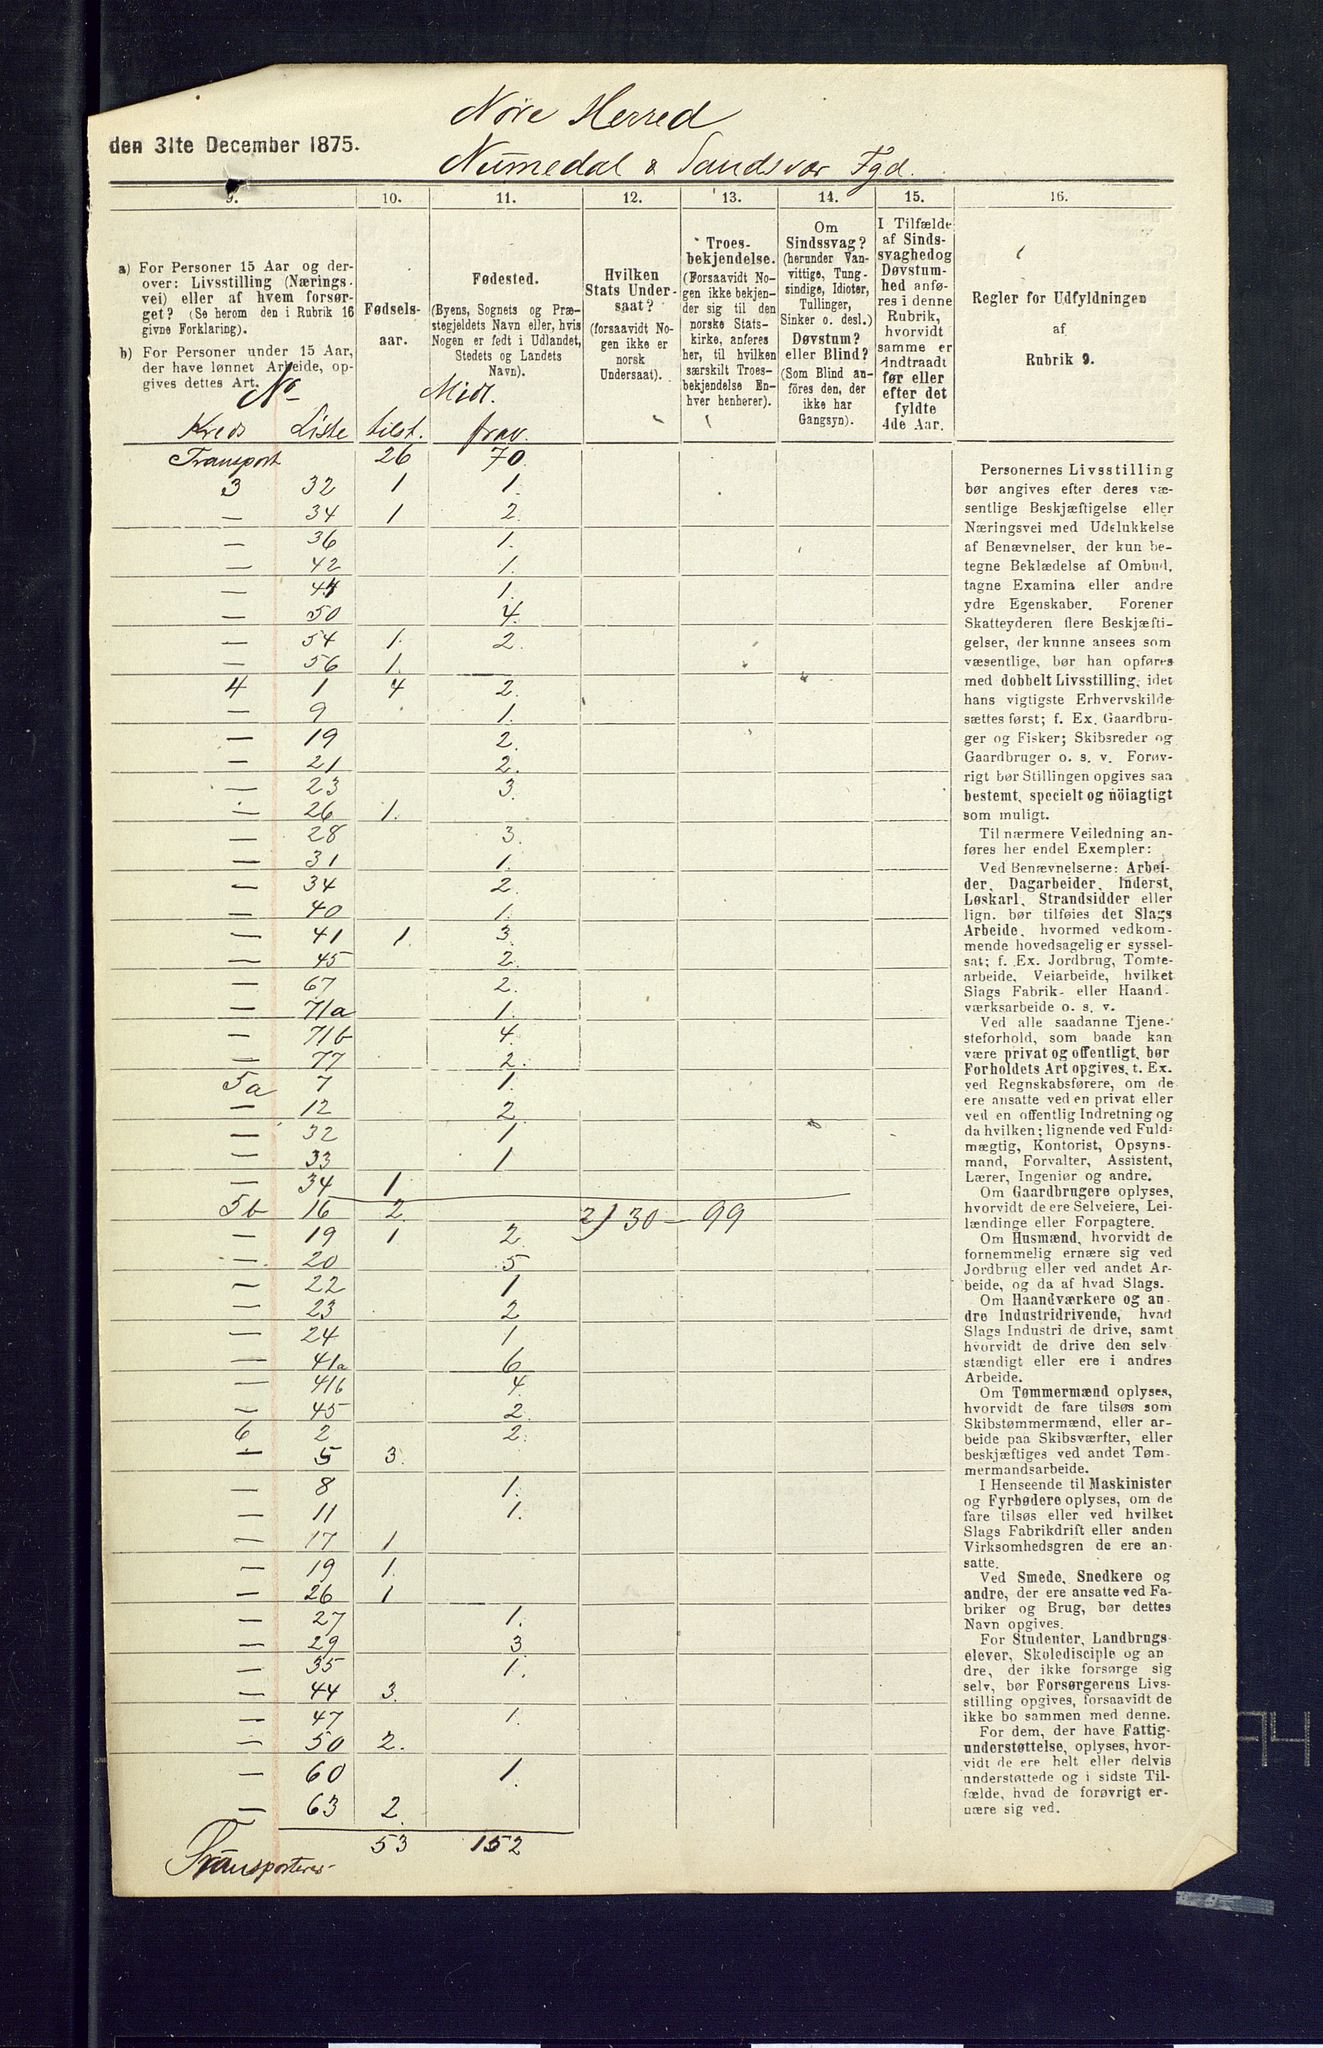 Nore Herred
den 31te December 1875.
Numedal & Sandsvær Fgd.
9. 10. 11. 12. 13. 14. 15. 16.
a) For Personer 15 Aar og der-
over: Livsstilling (Nærings-
vei) eller af hvem forsør-
get? (Se herom den i Rubrik 16
givne Forklaring).
b) For Personer under 15 Aar,
der have lønnet Arbeide, op-
gives dettes Art.
Fødsels-
aar.
Fødested.
(Byens, Sognets og Præ-
stegjeldets Navn eller, hvis
Nogen er født i Udlandet,
Stedets og Landets
Navn).
Hvilken
Stats Under-
saat?
(forsaavidt No-
gen ikke er
norsk
Undersaat).
Troes-
bekjendelse.
(Forsaavidt No-
gen ikke bekjen-
der sig til den
norske Stats-
kirke, anføres
her, til hvilken
særskilt Troes-
bekjendelse En-
hver henhører).
Om
Sindssvag?
(herunder Van-
vittige, Tung-
sindige, Idioter,
Tullinger,
Sinker o. desl.)
Døvstum?
eller Blind?
(Som Blind an-
føres den, der
ikke har
Gangsyn).
I Tilfælde
af Sinds-
svaghedog
Døvstum-
hed anfø-
res i denne
Rubrik,
hvorvidt
samme er
indtraadt
før eller
efter det
fyldte
4de Aar.
Regler for Udfyldningen
af
Rubrik 9.
No Midl.
Kreds Liste tilst. frav.
Transport 26 70.
3 32 1 1.
— 34 1 2.
— 36 1.
— 42 1.
— 44 1.
— 50 4.
— 54 1. 2.
— 56 1.
4 1 4 2.
— 9 1.
— 19 2.
— 21 2.
— 23 3.
— 26 1.
— 28 3.
— 31 1.
— 34 2.
— 40 1.
— 41 1. 3.
— 45 2.
— 67 2.
— 71a 1.
— 71b 4.
— 77 2.
5a 7 1.
— 12 2.
— 32 1
— 33 1
— 34 1.
5b 16 2. 2) 30 — 99
— 19 1 2.
— 20 5
— 22 1
— 23 2
— 24 1
— 41a 6
— 41b 4.
— 45 2.
6 2 2.
— 5 3.
— 8 1.
— 11 1.
— 17 1
— 19 1.
— 26 1
— 27 1.
— 29 3
— 35 1.
— 44 3.
— 47 1.
— 50 2.
— 60 1.
— 63 2.
53 152
Transporteres
Personernes Livsstilling
bør angives efter deres væ-
sentlige Beskjæftigelse eller
Næringsvei med Udelukkelse
af Benævnelser, der kun be-
tegne Beklædelse af Ombud,
tagne Examina eller andre
ydre Egenskaber. Forener
Skatteyderen flere Beskjæfti-
gelser, der kunne ansees som
væsentlige, bør han opføres
med dobbelt Livsstilling, idet
hans vigtigste Erhvervskilde
sættes først; f. Ex. Gaardbru-
ger og Fisker; Skibsreder og
Gaardbruger o. s. v. Forøv-
rigt bør Stillingen opgives saa
bestemt, specielt og nöiagtigt
som muligt.
Til nærmere Veiledning an-
føres her endel Exempler:
Ved Benævnelserne: Arbei-
der, Dagarbeider, Inderst,
Løskarl, Strandsidder eller
lign. bør tilføies det Slags
Arbeide, hvormed vedkom-
mende hovedsagelig er syssel-
sat; f. Ex. Jordbrug, Tomte-
arbeide, Veiarbeide, hvilket
Slags Fabrik- eller Haand-
værksarbeide o. s. v.
Ved alle saadanne Tjene-
steforhold, som baade kan
være privat og offentligt, bør
Forholdets Art opgives, t. Ex.
ved Regnskabsførere, om de
ere ansatte ved en privat eller
ved en offentlig Indretning og
da hvilken; lignende ved Fuld-
mægtig, Kontorist, Opsyns-
mand, Forvalter, Assistent,
Lærer, Ingeniør og andre.
Om Gaardbrugere oplyses,
hvorvidt de ere Selveiere, Lei-
lændinge eller Forpagtere.
Om Husmænd, hvorvidt de
fornemmelig ernære sig ved
Jordbrug eller ved andet Ar-
beide, og da af hvad Slags.
Om Haandværkere og an-
dre Industridrivende, hvad
Slags Industri de drive, samt
hvorvidt de drive den selv-
stændigt eller ere i andres
Arbeide.
Om Tømmermænd oplyses,
hvorvidt de fare tilsøs som
Skibstømmermænd, eller ar-
beide paa Skibsværfter, eller
beskjæftiges ved andet Tøm-
mermandsarbeide.
I Henseende til Maskinister
og Fyrbødere oplyses, om de
fare tilsøs eller ved hvilket
Slags Fabrikdrift eller anden
Virksomhedsgren de ere an-
satte.
Ved Smede, Snedkere og
andre, der ere ansatte ved Fa-
briker og Brug, bør dettes
Navn opgives.
For Studenter, Landbrugs-
elever, Skoledisciple og an-
dre, der ikke forsørge sig
selv, bør Forsørgerens Livs-
stilling opgives, forsaavidt de
ikke bo sammen med denne.
For dem, der have Fattig-
understøttelse, oplyses, hvor-
vidt de ere helt eller delvis
understøttede og i sidste Til-
fælde, hvad de forøvrigt er-
nære sig ved.